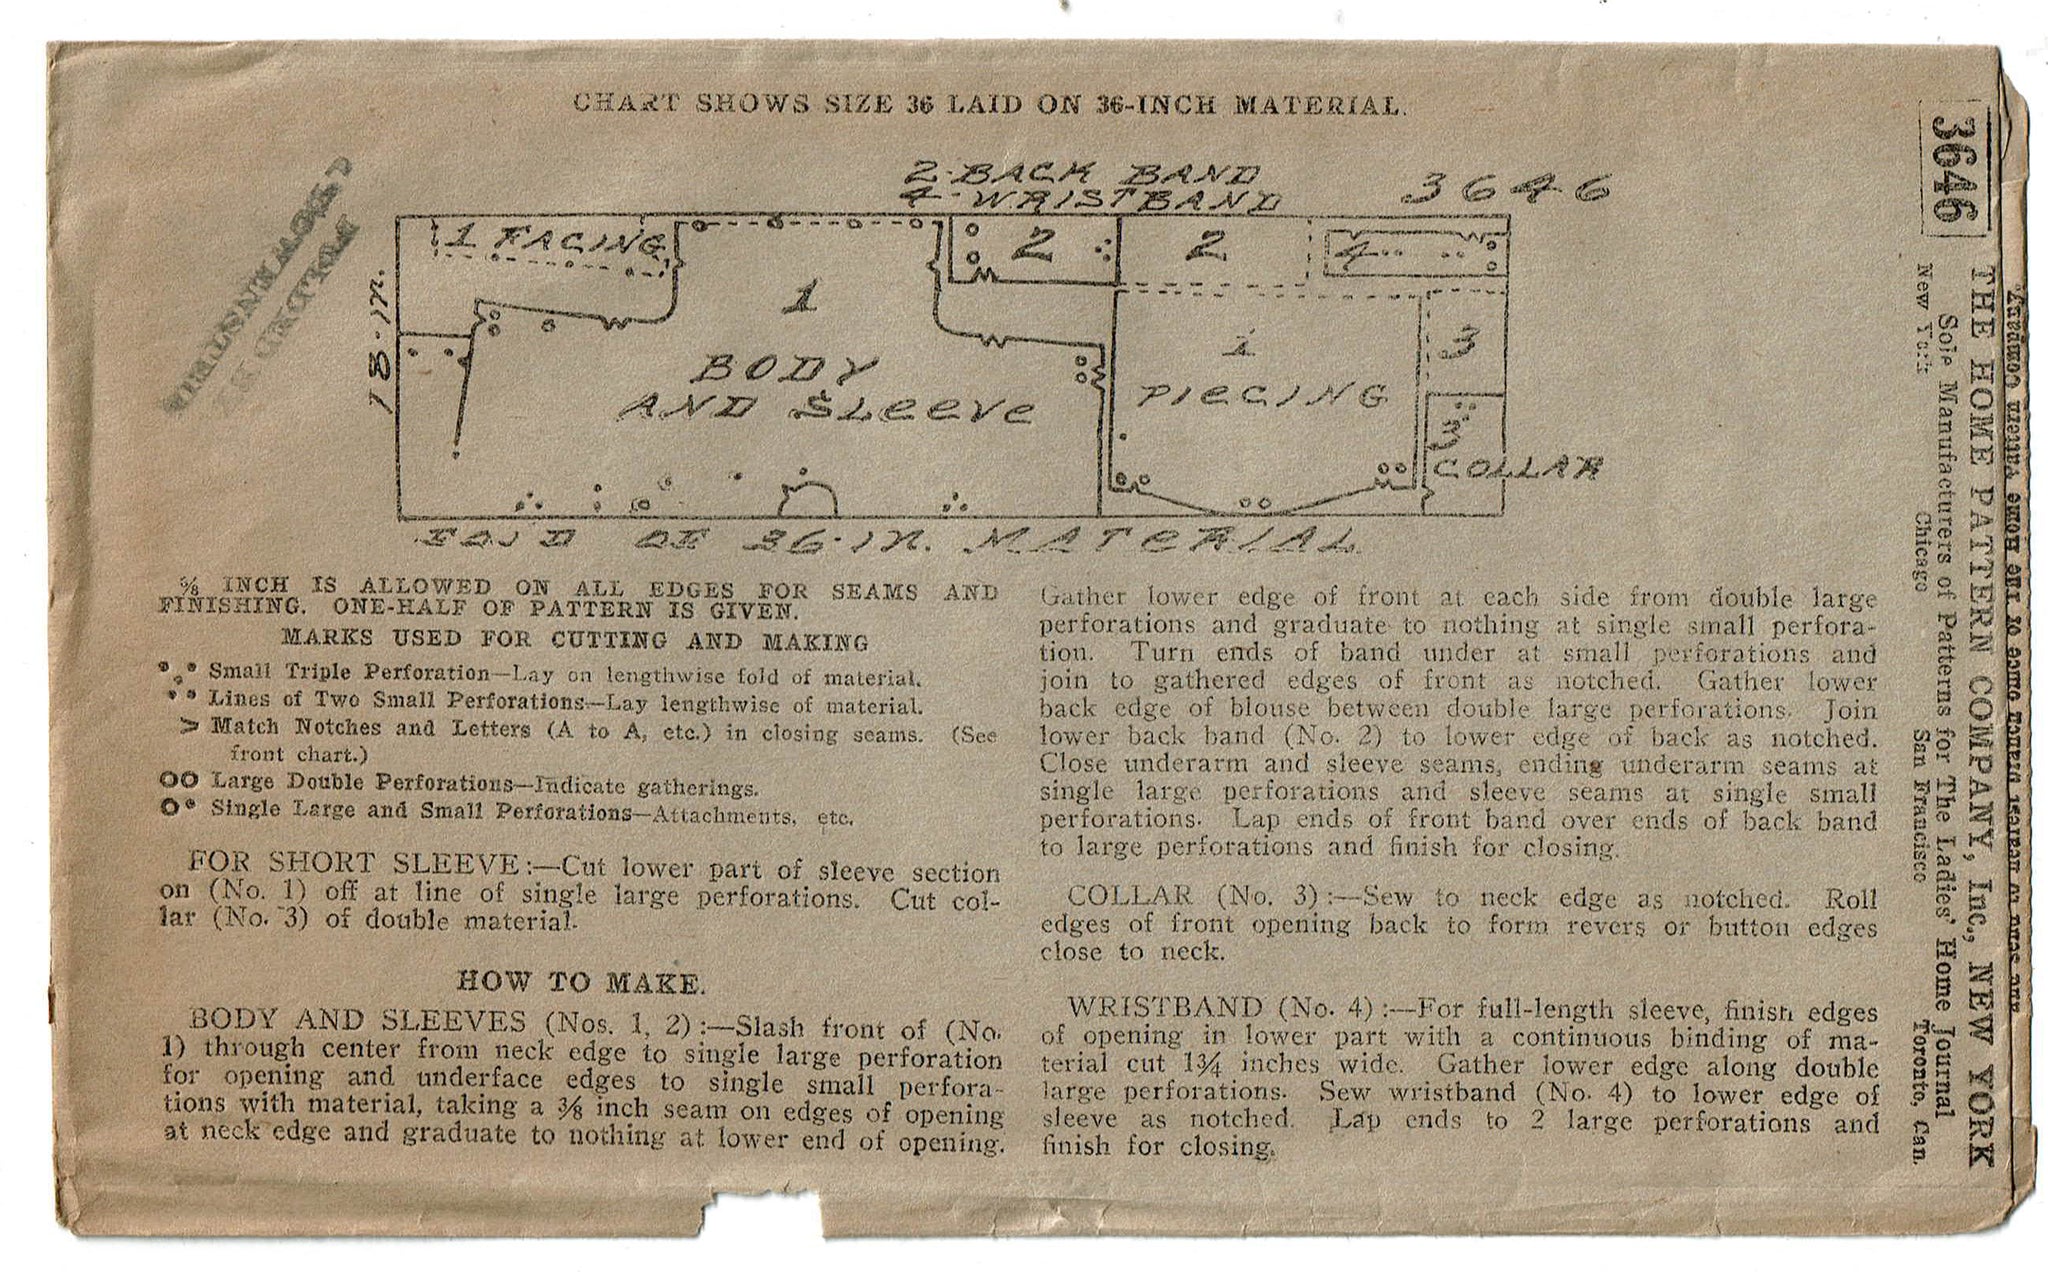 CHART SHOWS SIZE 36 LAID ON 36-INCH MATERIAL.
2-BACK BAND
4-WRISTBAND
3646
1 FACING
2
2
4
1
18-in.
BODY
AND SLeeve
1
PIeCING
3
3
COLLAR
FOLD OF 36-in. MATeRIAL
⅜ INCH IS ALLOWED ON ALL EDGES FOR SEAMS AND
FINISHING. ONE-HALF OF PATTERN IS GIVEN.
MARKS USED FOR CUTTING AND MAKING
Small Triple Perforation—Lay on lengthwise fold of material.
Lines of Two Small Perforations—Lay lengthwise of material.
Match Notches and Letters (A to A, etc.) in closing seams. (See
front chart.)
Large Double Perforations—Indicate gatherings.
Single Large and Small Perforations—Attachments, etc.
FOR SHORT SLEEVE:—Cut lower part of sleeve section
on (No. 1) off at line of single large perforations. Cut col-
lar (No. 3) of double material.
HOW TO MAKE.
BODY AND SLEEVES (Nos. 1, 2):—Slash front of (No.
1) through center from neck edge to single large perforation
for opening and underface edges to single small perfora-
tions with material, taking a ⅜ inch seam on edges of opening
at neck edge and graduate to nothing at lower end of opening.
Gather lower edge of front at each side from double large
perforations and graduate to nothing at single small perfora-
tion. Turn ends of band under at small perforations and
join to gathered edges of front as notched. Gather lower
back edge of blouse between double large perforations. Join
lower back band (No. 2) to lower edge of back as notched.
Close underarm and sleeve seams, ending underarm seams at
single large perforations and sleeve seams at single small
perforations. Lap ends of front band over ends of back band
to large perforations and finish for closing.
COLLAR (No. 3):—Sew to neck edge as notched. Roll
edges of front opening back to form revers or button edges
close to neck.
WRISTBAND (No. 4):—For full-length sleeve, finish edges
of opening in lower part with a continuous binding of ma-
terial cut 1¾ inches wide. Gather lower edge along double
large perforations. Sew wristband (No. 4) to lower edge of
sleeve as notched. Lap ends to 2 large perforations and
finish for closing.
3646
THE HOME PATTERN COMPANY, Inc., NEW YORK
Sole Manufacturers of Patterns for The Ladies' Home Journal
New York Chicago San Francisco Toronto, Can.
and send to nearest branch office of The Home Pattern Company